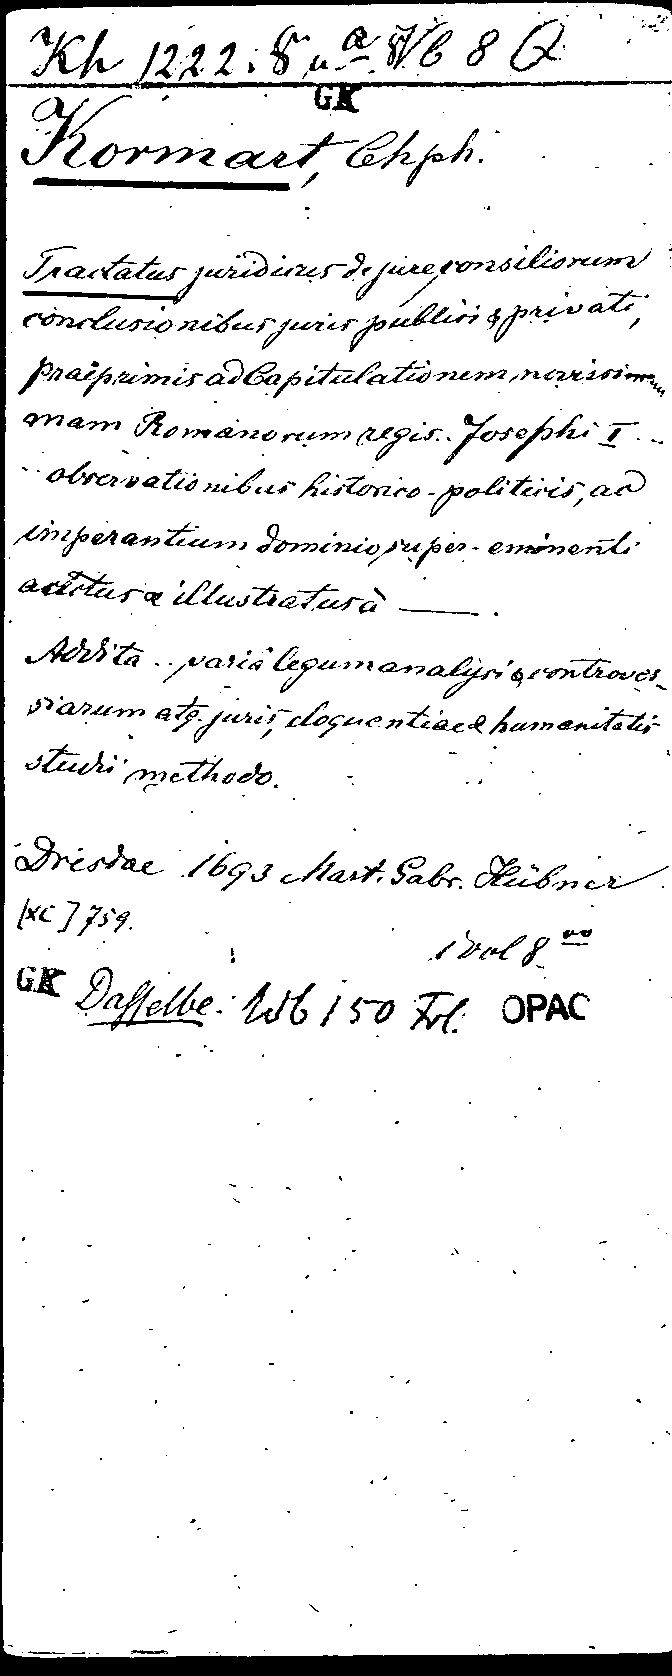 Kh 1222 : 8 u. a. Wb 8 Q
GK
Kormart, Chph.
Tractatus juridicus de jure consiliorum
conclusionibus juris publici & privati,
praeprimis ad Capitulationem novissi
mam Romanorum regis .. Josephi I ..
.. observationibus historico-politicis, ac
imperantium dominio super-eminenti
auctus & illustratus à ——.
Addita .. variâ legum analysi & controver-
siarum atq. juris, eloquentiae & humanitatis
studii methodo.
Dresdae 1693 Mart. Gabr. Hübner
[XC] 759.
1 vol 8vo
GK Dasselbe: Wb 150 Frl. OPAC